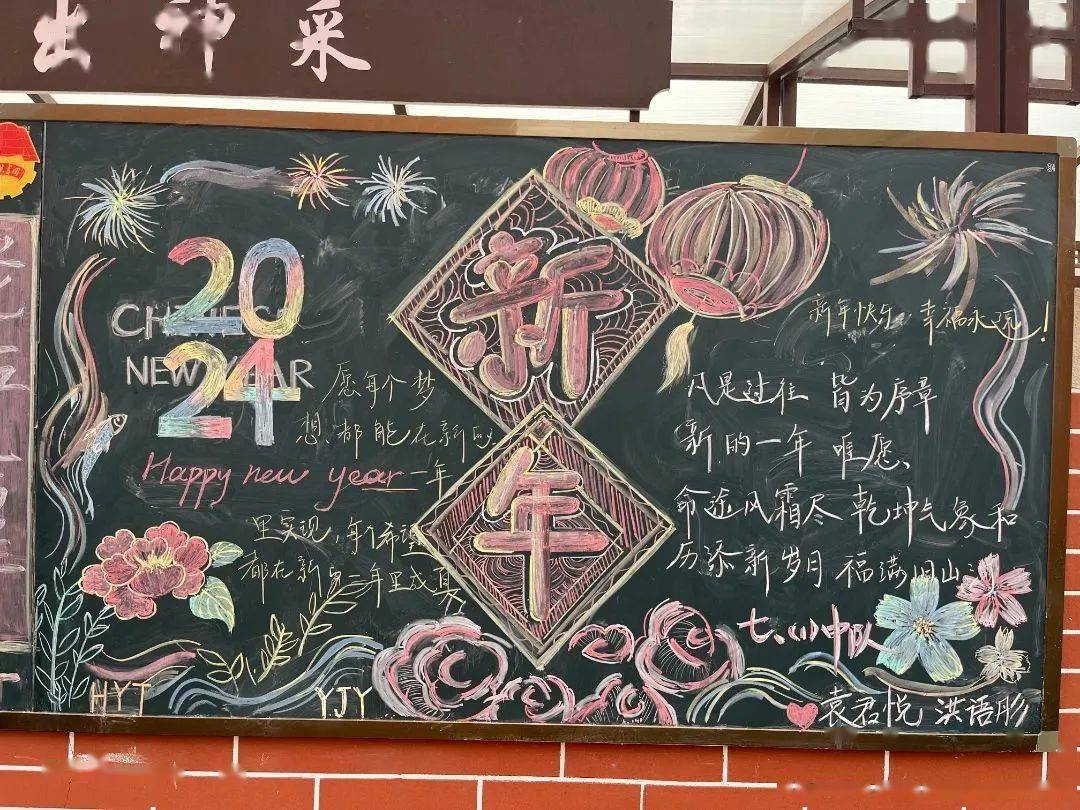 出神采
2024
CHINESE
NEW YEAR
愿每个梦
想、都能在新的
Happy new year 一年
里实现，每个希望
都在新的一年里成真
新
年
新年快乐，幸福永远！
凡是过往 皆为序章
新的一年 唯愿、
命途风霜尽 乾坤气象和
历添新岁月 福满旧山
七、(1)中队
HYT
YJY
袁君悦 洪语彤